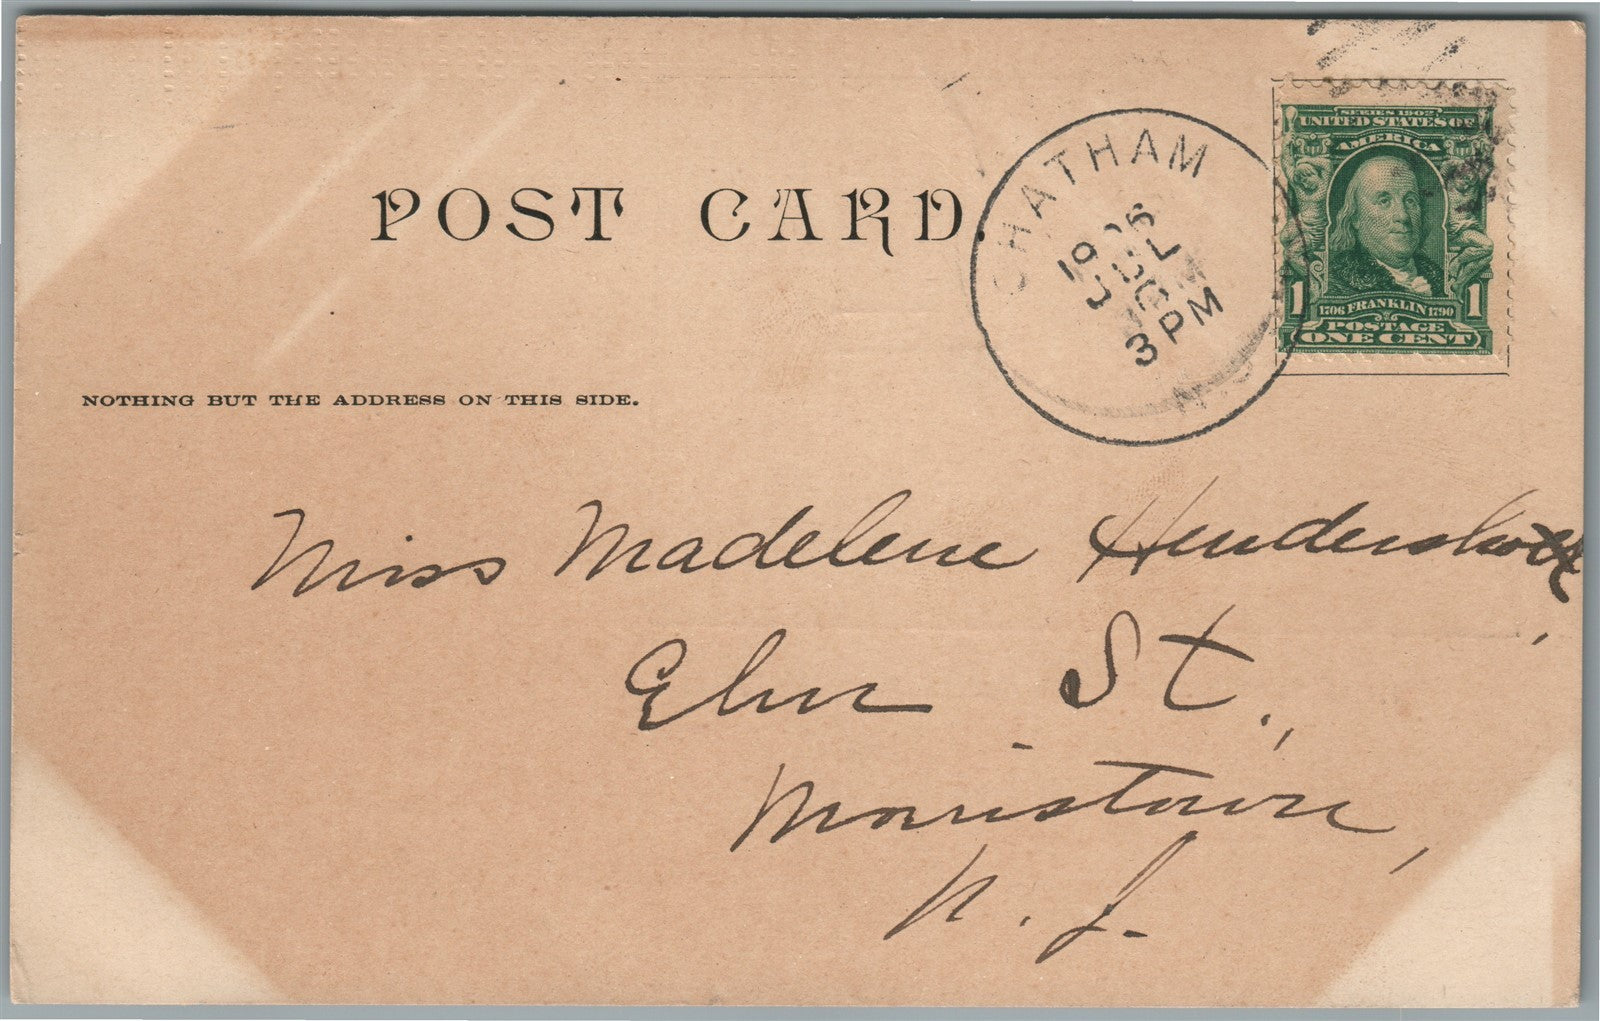 SERIES 1902
UNITED STATES OF
AMERICA
1 1
1706 FRANKLIN 1790
POSTAGE
ONE CENT
CHATHAM
3 PM
POST CARD.
NOTHING BUT THE ADDRESS ON THIS SIDE.
Miss Madelene
Elm St.,
Morristown,
N. J.